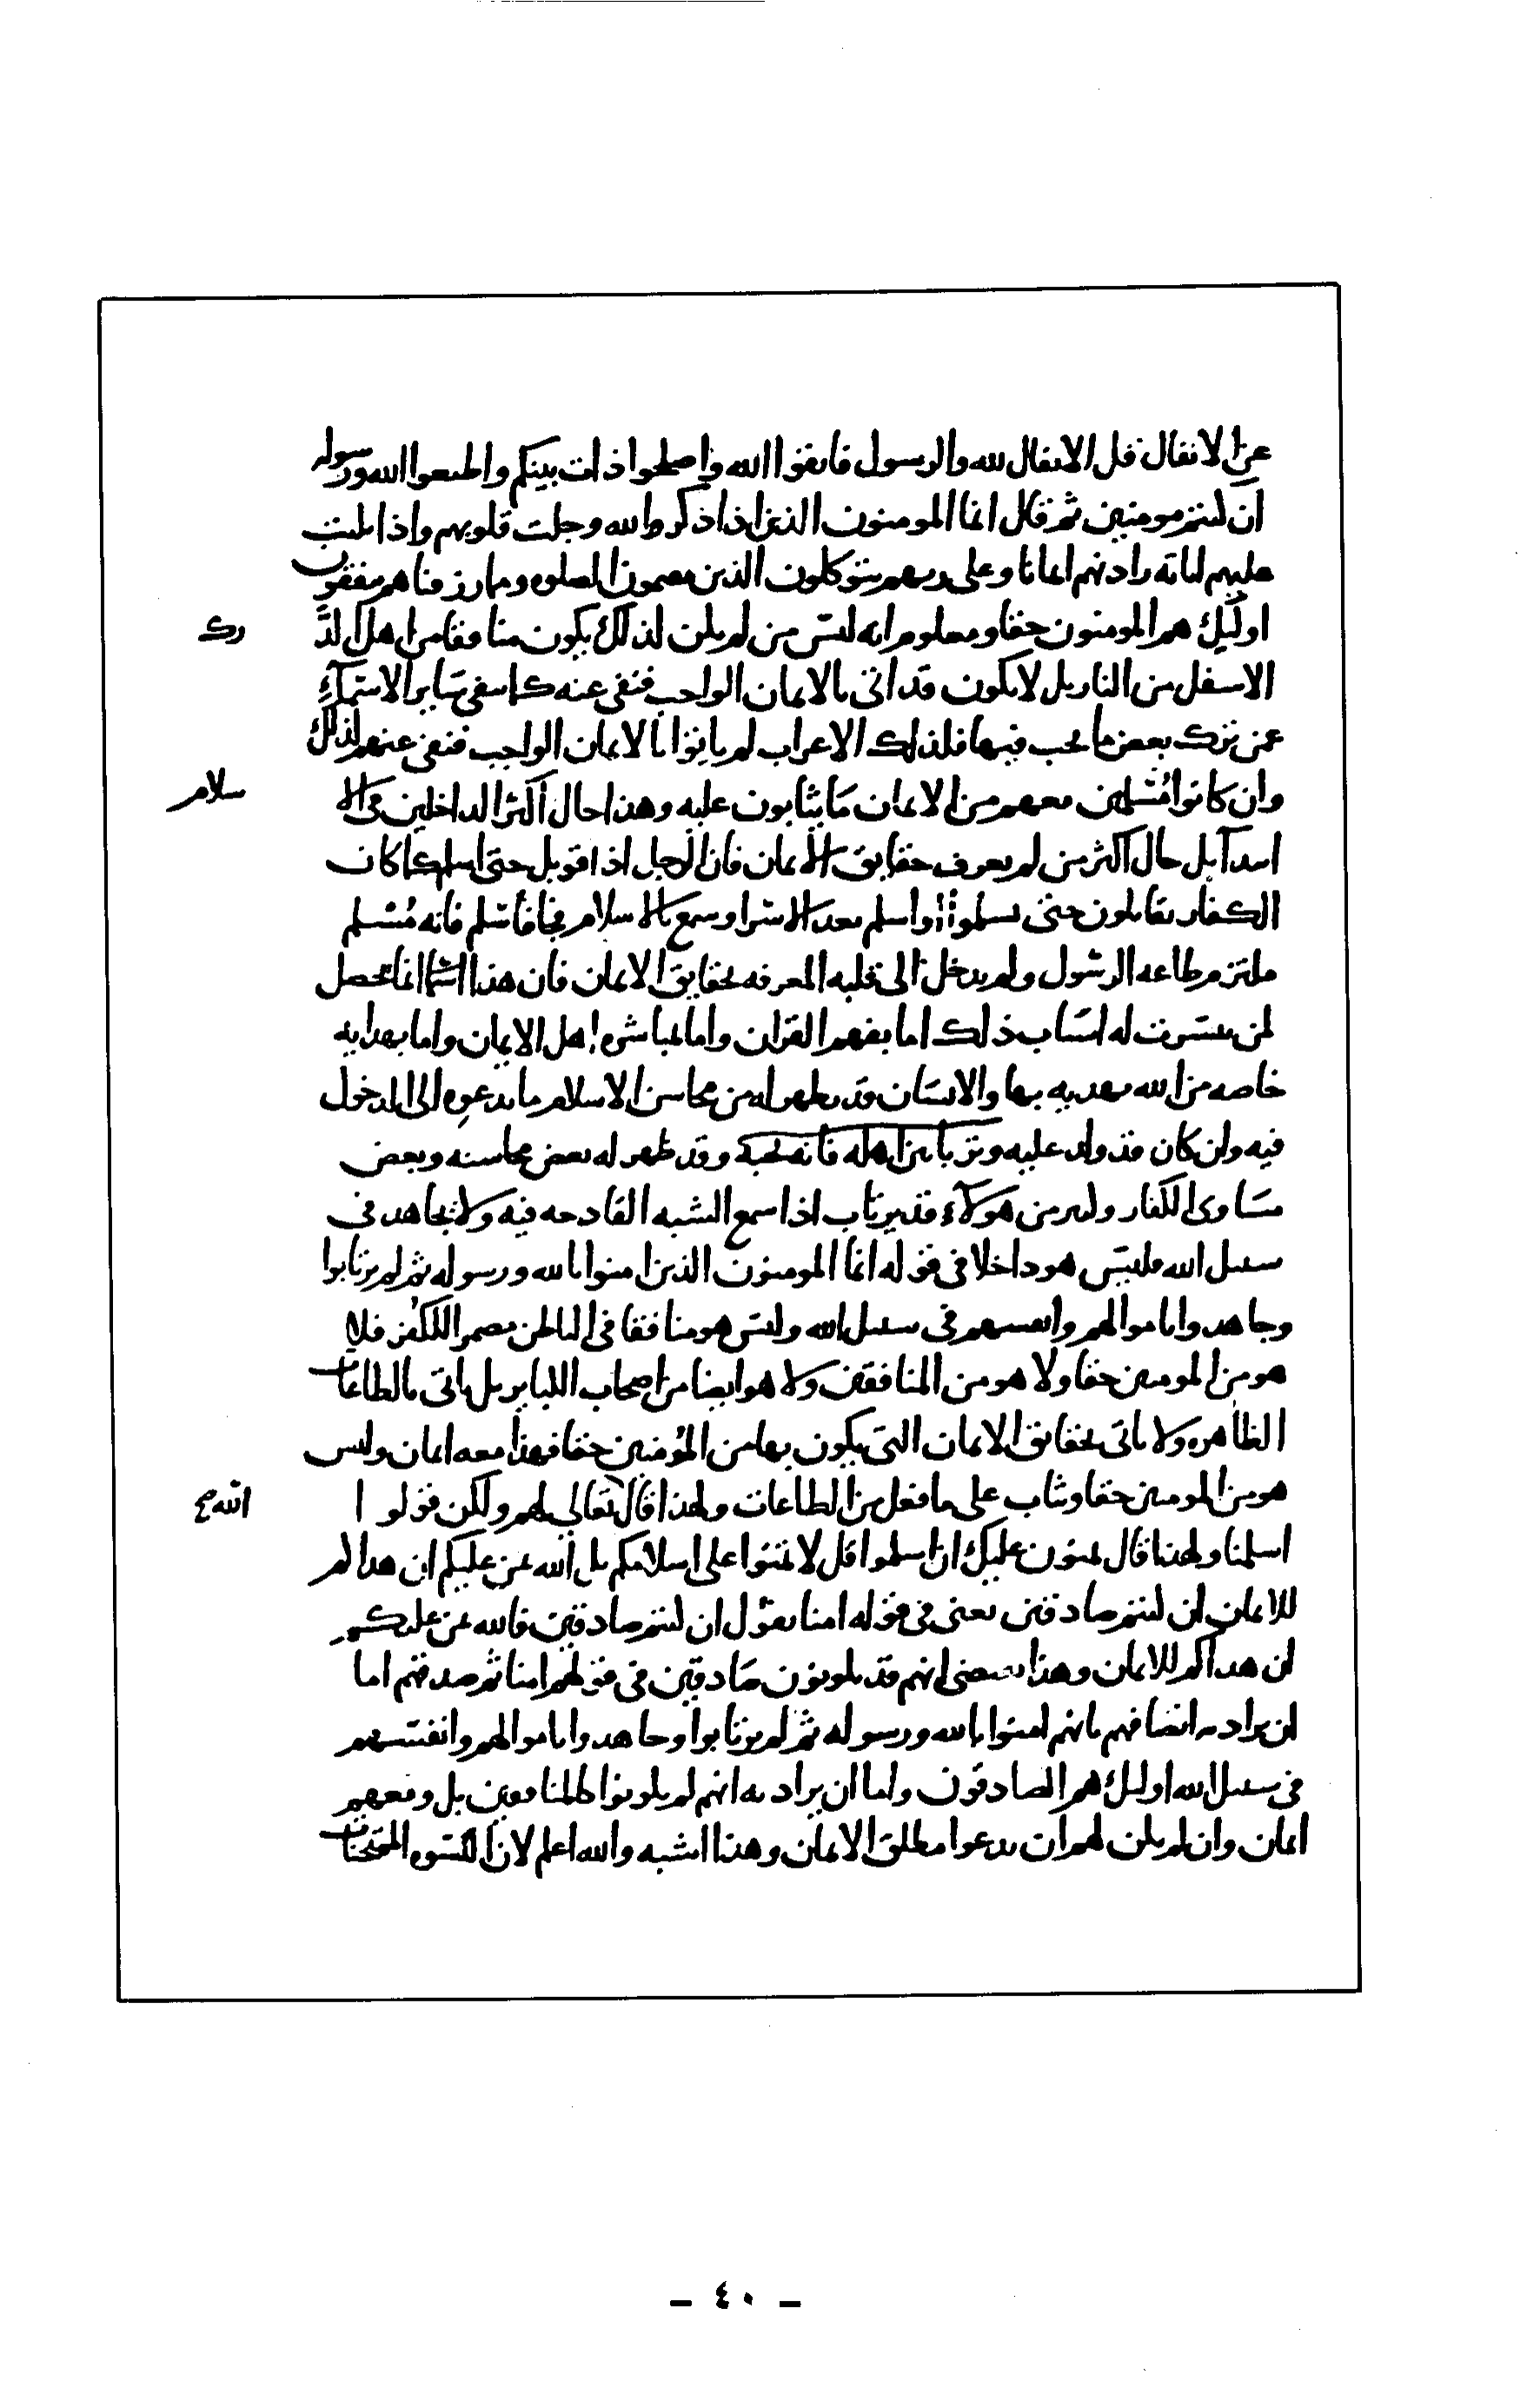 عن الانفال قل الانفال لله والرسول فاتقوا الله واصلحوا ذات بينكم واطيعوا الله ورسوله
ان كنتم مومنين ثم قال انما المومنون الذين اذا ذكر الله وجلت قلوبهم واذا تليت
عليهم اياته زادتهم ايمانا وعلى ربهم يتوكلون الذين يقيمون الصلوه ومما رزقناهم ينفقون
اوليك هم المومنون حقا ومعلوم انه ليس من لم يكن لذلك يكون منافقا من اهل الد
رك
الاسفل من النار بل لا يكون قد اتى بالايمان الواجب فنفى عنه كما ينفى ساير الاسماء
عمن ترك بعض ما يجب فيها فلذلك الاعراب لم ياتوا بالايمان الواجب فنفى عنهم لذلك
وان كانوا مسلمين معهم من الايمان ما يثابون عليه وهذا حال اكثر الداخلين في الا
سلام
ابتدآ بل حال اكثر من لم يعرف حقايق الايمان فان الرجل اذا قوتل حتى اسلم كما كان
الكفار يقاتلون حتى يسلموا او اسلم بعد الاسر او سمع بالاسلام فجا فاسلم فانه مسلم
ملتزم طاعه الرسول ولم يدخل الى قلبه المعرفه بحقايق الايمان فان هذا انما يحصل
لمن تيسرت له اسباب ذلك اما بفهم القران واما بمباشره اهل الايمان واما بهدايه
خاصه من الله يهديه بها والانسان قد يظهر له من محاسن الاسلام ما يدعوه الى الدخول
فيه وان كان قد ولد عليه وتربا بين اهله فانه يحبه وقد ظهر له بعض محاسنه وبعض
مساوى الكفار وكثير من هولآء قد يرتاب اذا سمع الشبه القادحه فيه ولا يجاهد في
سبيل الله فليس هو داخلا في قوله انما المومنون الذين امنوا بالله ورسوله ثم لم يرتابوا
وجاهدوا باموالهم وانفسهم في سبيل الله وليس هو منافقا في الباطن مضمرا للكفر فلا
هو من المومنين حقا ولا هو من المنافقين ولا هو ايضا من اصحاب الكباير بل ياتى بالطاعات
الظاهره ولا ياتى بحقايق الايمان التى يكون بها من المؤمنين حقا فهذا معه ايمان وليس
هو من المومنين حقا ويثاب على ما فعل من الطاعات ولهذا قال تعالى لهم ولكن قولوا ا
الله
اسلمنا ولهذا قال يمنون عليك ان اسلموا قل لا تمنوا على اسلامكم بل الله يمن عليكم ان هداكم
للايمان ان كنتم صادقين يعنى في قوله امنا يقول ان كنتم صادقين فالله يمن عليكم
ان هداكم للايمان وهذا يقتضى انهم قد يكونون صادقين في قولهم امنا ثم صدقهم اما
ان يراد به اتصافهم بانهم امنوا بالله ورسوله ثم لم يرتابوا وجاهدوا باموالهم وانفسهم
في سبيل الله اوليك هم الصادقون واما ان يراد به انهم لم يكونوا كالمنافقين بل ومعهم
ايمان وان لم يكن لهم ان يدعوا مطلق الايمان وهذا اشبه والله اعلم لان النسوه الممتحنات
- ٤٠ -